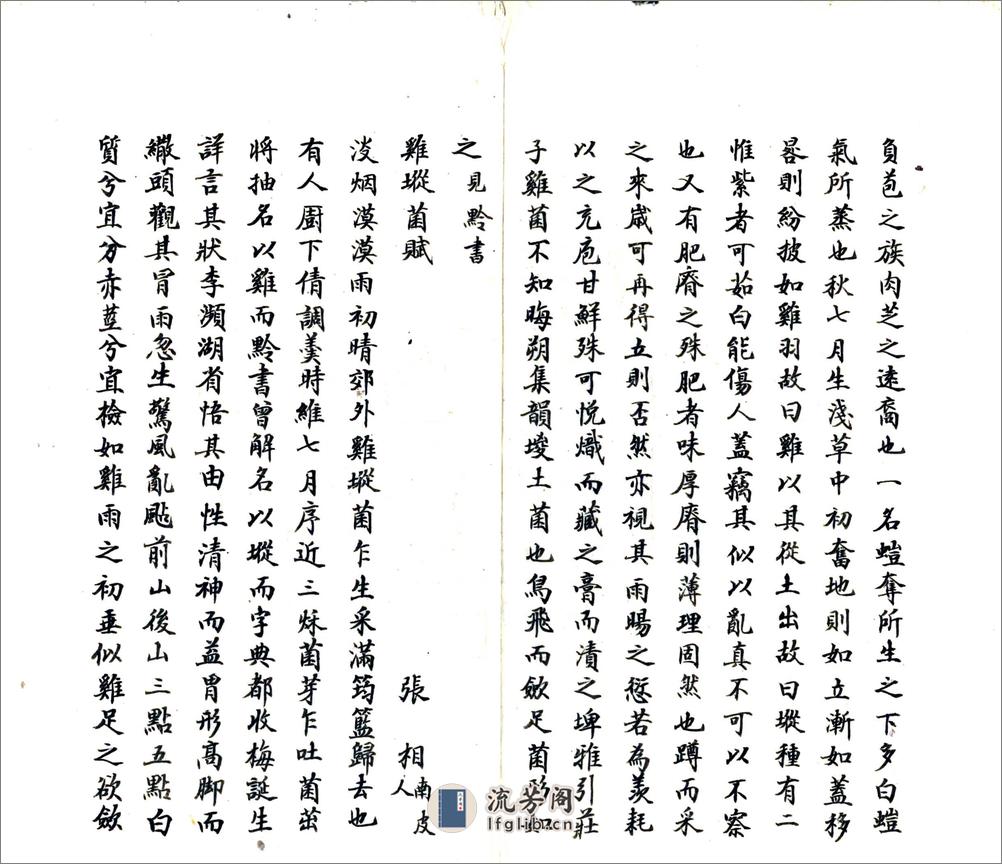 負苞之族肉芝之遠裔也一名螘奪所生之下多白螘
氣所蒸也秋七月生淺草中初奮地則如立漸如蓋移
晷則紛披如雞羽故曰雞以其從土出故曰㙡種有二
惟紫者可茹白能傷人蓋竊其似以亂真不可以不察
也又有肥瘠之殊肥者味厚瘠則薄理固然也蹲而采
之來歲可再得立則否然亦視其雨暘之愆若為羨耗
以之充庖甘鮮殊可悅熾而藏之膏而漬之埤雅引莊
子雞菌不知晦朔集韻㙡土菌也鳥飛而斂足菌形如
之見黔書
雞㙡菌賦 張相南皮人
淡烟漠漠雨初晴郊外雞㙡菌乍生采滿筠籃歸去也
有人廚下倩調羹時維七月序近三秌菌芽乍吐菌茁
將抽名以雞而黔書曾解名以㙡而字典都收梅誕生
詳言其狀李瀕湖省悟其由性清神而益胃形高脚而
繖頭觀其冒雨忽生驚風亂颭前山後山三點五點白
質兮宜分赤莖兮宜檢如雞雨之初垂似雞足之欲斂
流芳阁
lfglib.cn